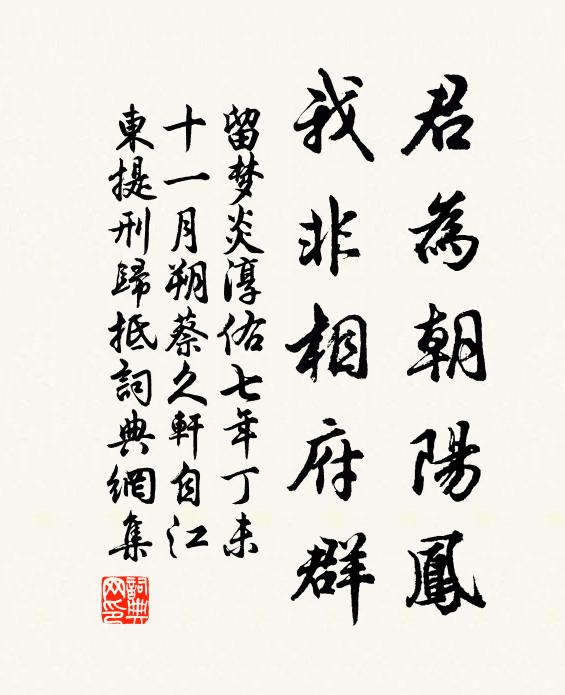 君為朝陽鳳
我非相府群
留梦炎淳佑七年丁未
十一月朔蔡久軒自江
東提刑歸抵詞典網集
詞典
网印